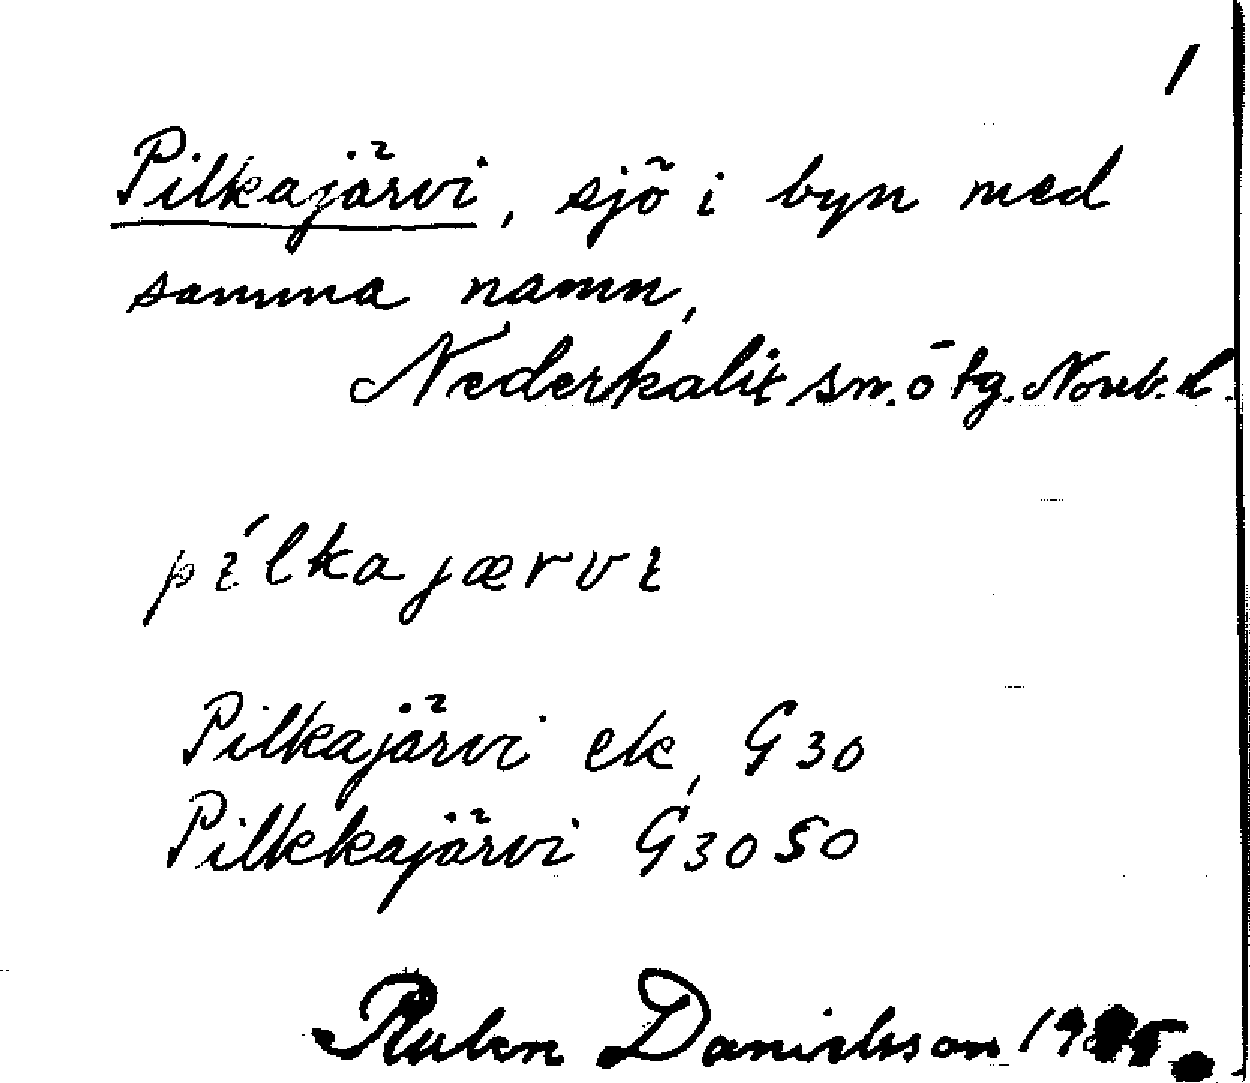 1
Pilkajärvi, sjö i byn med
samma namn,
Nederkalix sn. ö tg. Norrb. l.
pílkajærvɩ
Pilkajärvi ek, G30
Pilkkajärvi G30 SO
Ruben Danielsson